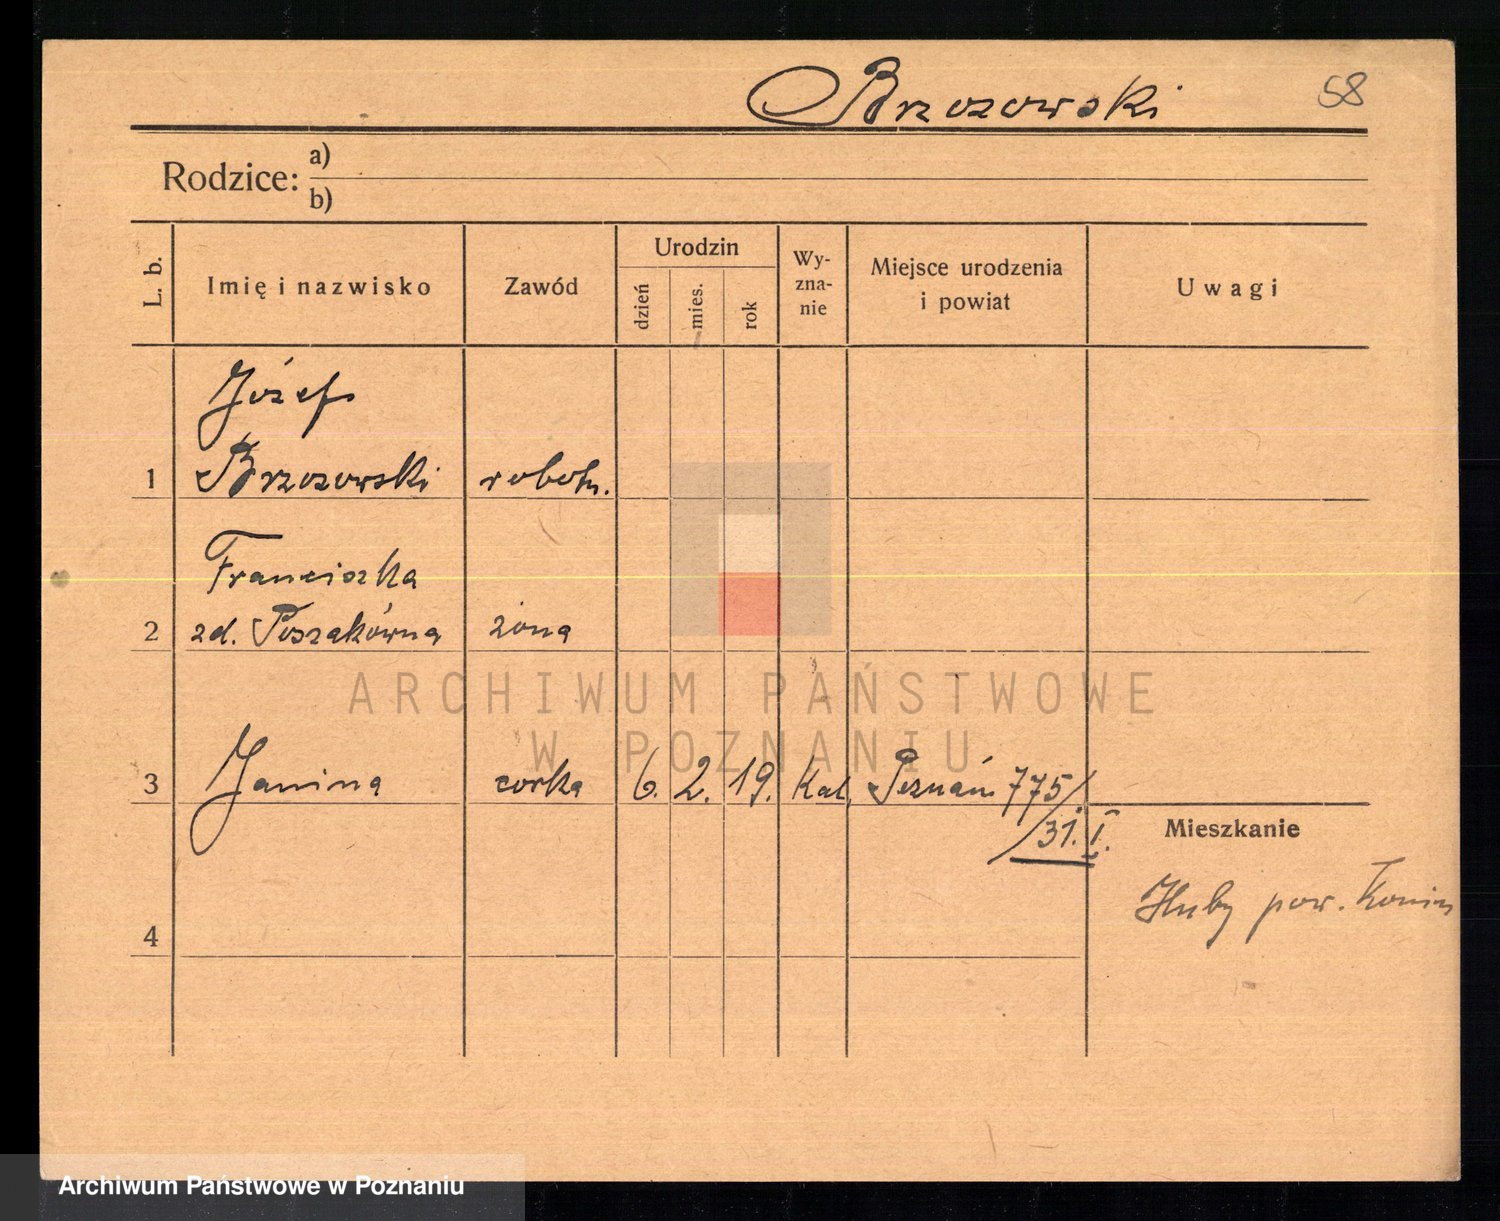 Brzozowski 58
Rodzice: a)
b)
L. b.
Imię i nazwisko
Zawód
Urodzin
dzień
mies.
rok
Wy-
zna-
nie
Miejsce urodzenia
i powiat
Uwagi
Józef
1 Brzozowski robotn.
Franciszka
2 zd. Poszakówna żona
ARCHIWUM PAŃSTWOWE
W POZNANIU
3 Janina corka 6. 2. 19. Kat. Poznań 775/
/31. I.
Mieszkanie
Huby pow. Konin
4
Archiwum Państwowe w Poznaniu